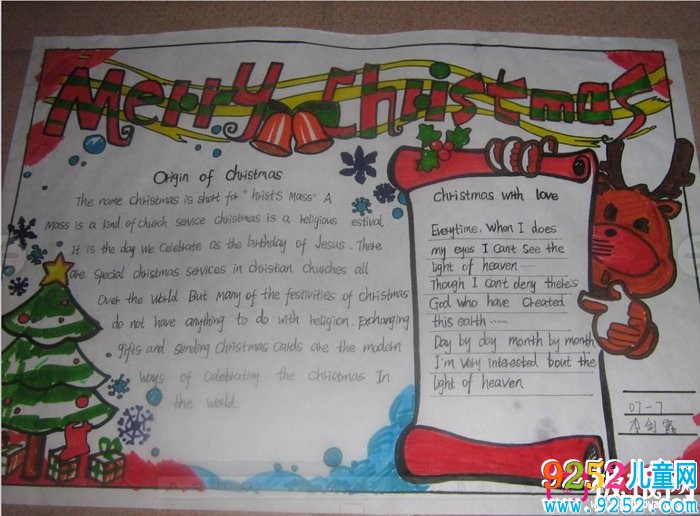 Merry Christmas
Origin of Christmas
The name Christmas is short for "hrist's Mass". A
Mass is a kind of church service christmas is a religious estival
It is the day we celebrate as the birthday of Jesus. There
are special christmas services in christian churches all
Over the world But many of the festivities of christmas
do not have anything to do with religion. Exchanging
gifts and sending Christmas cards are the modern
ways of celebrating the christmas In
the world
Christmas with love
Everytime. When I does
my eyes I cant see the
light of heaven
Though I can't deny there's
God who have created
this earth
Day by day month by month,
I'm very interested 'bout the
light of heaven
07-7
李剑
9252儿童网
www.9252.com